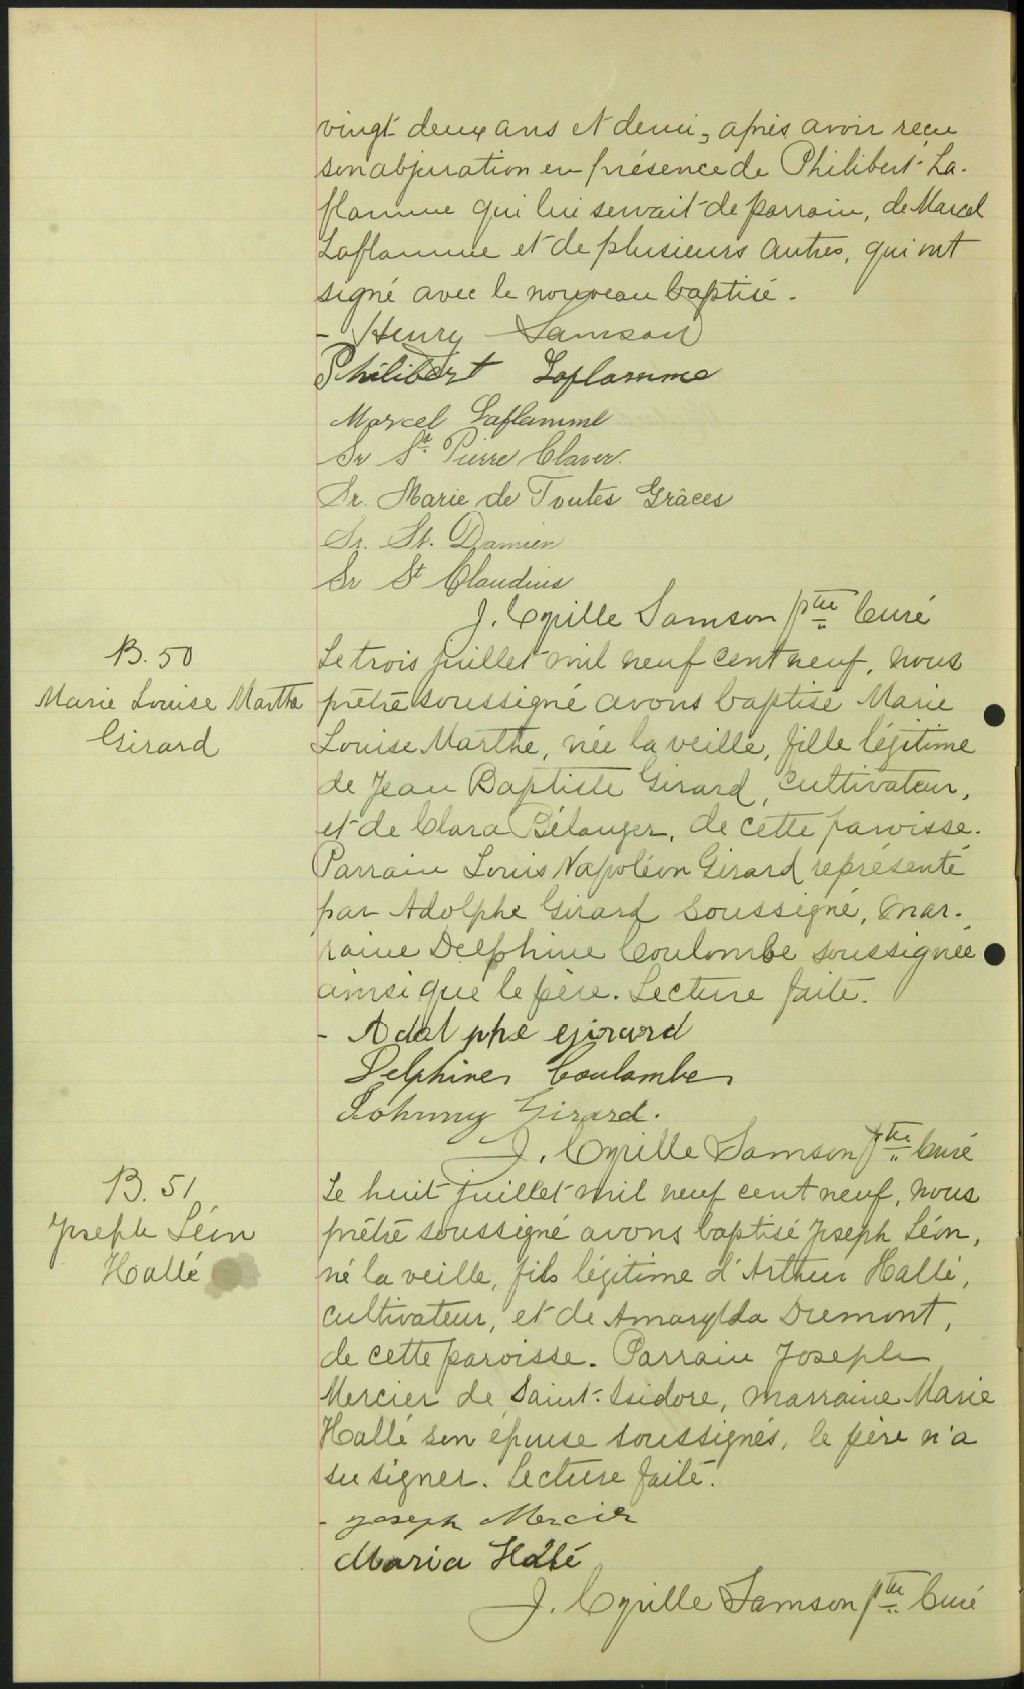 vingt deux ans et demi, après avoir reçu
son abjuration en présence de Philibert La-
flamme qui lui servait de parrain, de Marcel
Laflamme et de plusieurs autres, qui ont
signé avec le nouveau baptisé.
- Henry Samson
Philibert Laflamme
Marcel Laflamme
Sr St. Pierre Claver.
Sr. Marie de Toutes Grâces
Sr. St. Damien
Sr St Claudius
J. Cyrille Samson ptre Curé
B. 50
Marie Louise Marthe
Girard
Le trois juillet mil neuf cent neuf, nous
prêtre soussigné avons baptisé Marie
Louise Marthe, née la veille, fille légitime
de Jean Baptiste Girard, cultivateur,
et de Clara Bélanger, de cette paroisse.
Parrain Louis Napoléon Girard représenté
par Adolphe Girard soussigné, mar-
raine Delphine Coulombe soussignée
ainsi que le père. Lecture faite.
- Adolphe Girard
Delphine Coulombe
Johnny Girard.
J. Cyrille Samson ptre Curé
B. 51
Joseph Léon
Hallé
Le huit juillet mil neuf cent neuf, nous
prêtre soussigné avons baptisé Joseph Léon,
né la veille, fils légitime d'Arthur Hallé,
cultivateur, et de Amarylda Dumont,
de cette paroisse. Parrain Joseph
Mercier de Saint-Isidore, marraine Marie
Hallé son épouse soussignés, le père n'a
su signer. Lecture faite.
- Joseph Mercier
Maria Hallé
J. Cyrille Samson ptre Curé